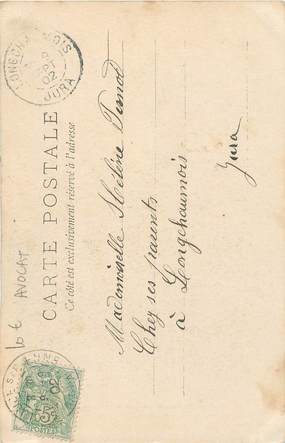 CARTE POSTALE
Ce côté est exclusivement réservé à l'adresse
Mademoiselle Hélène
Chez ses parents
à Longchaumois
Jura
LONGCHAUMOIS
SEPT
02
JURA
10 €
AVOCAT
02
5